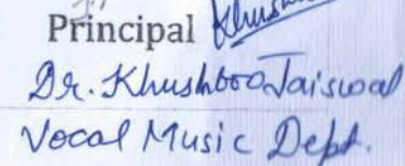 Principal
Dr. Khushboo Jaiswal
Vocal Music Dept.